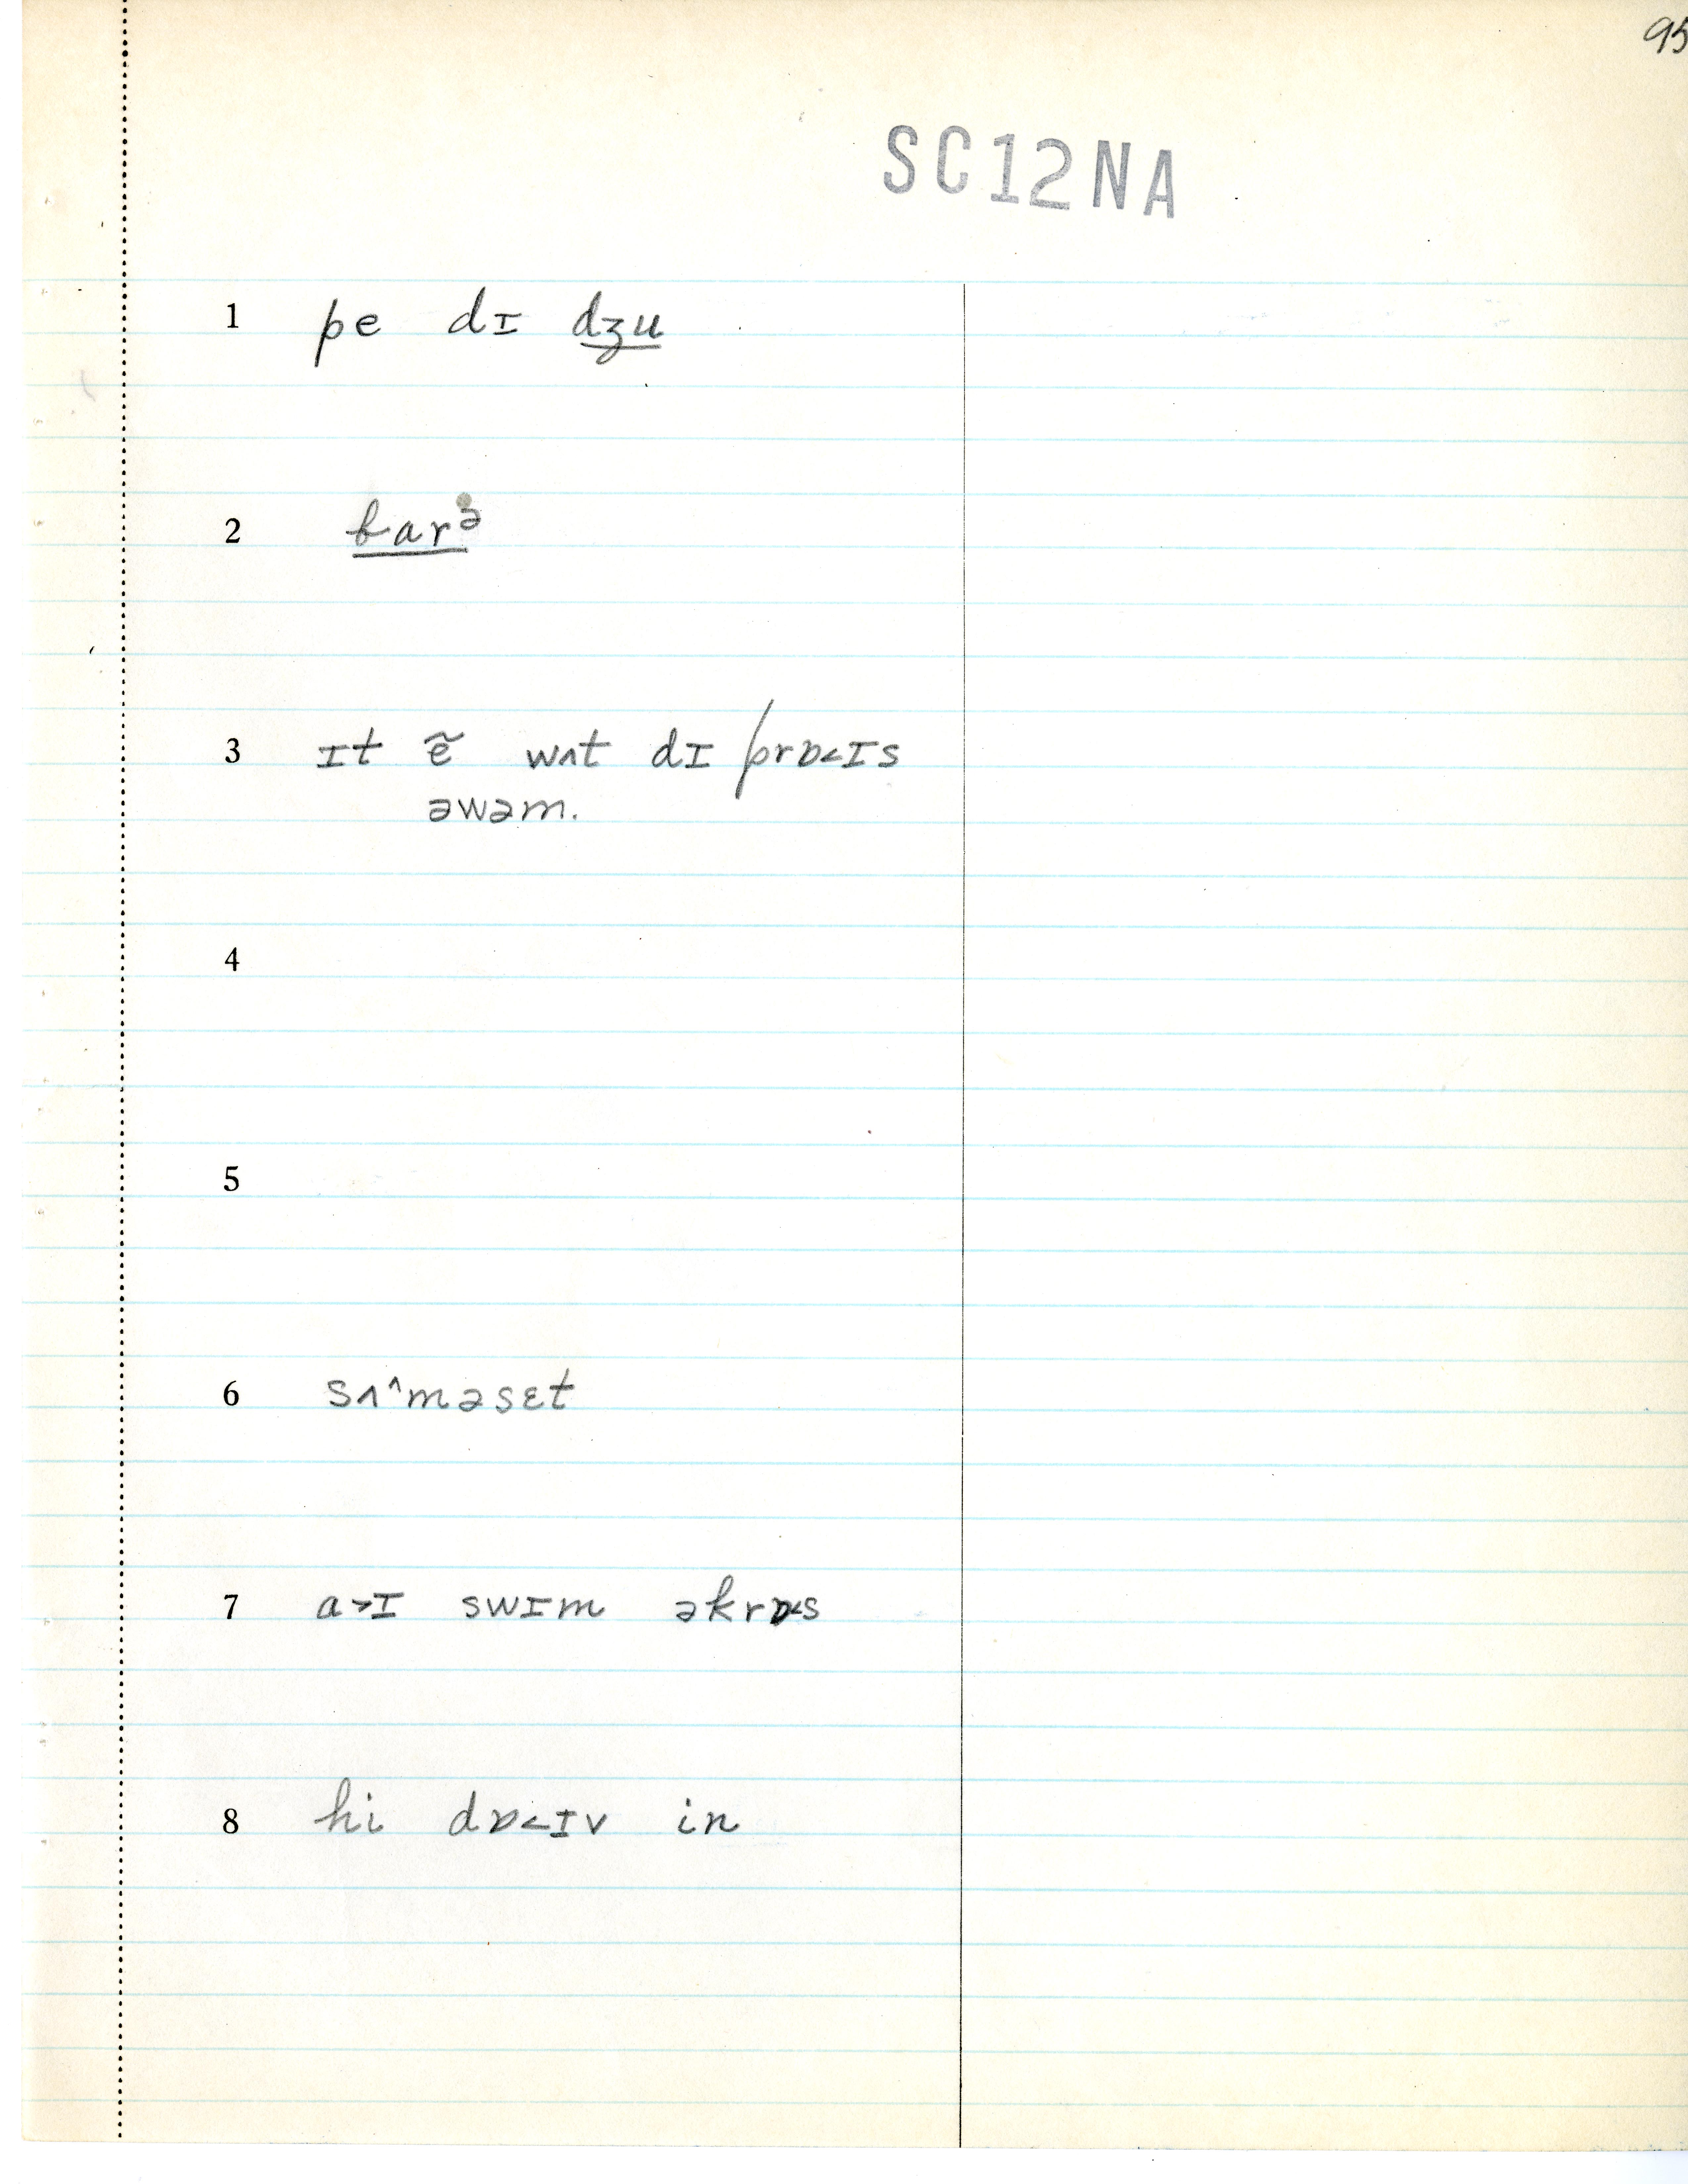 95
SC12NA
1 pe dɪ dʒu
2 barᵊ
3 ɪt ẽ wʌt dɪ prɒ<ɪs
əwəm.
4
5
6 sʌ^məsɛt
7 a>ɪ swɪm əkrɒ<s
8 hi dɒ<ɪv in